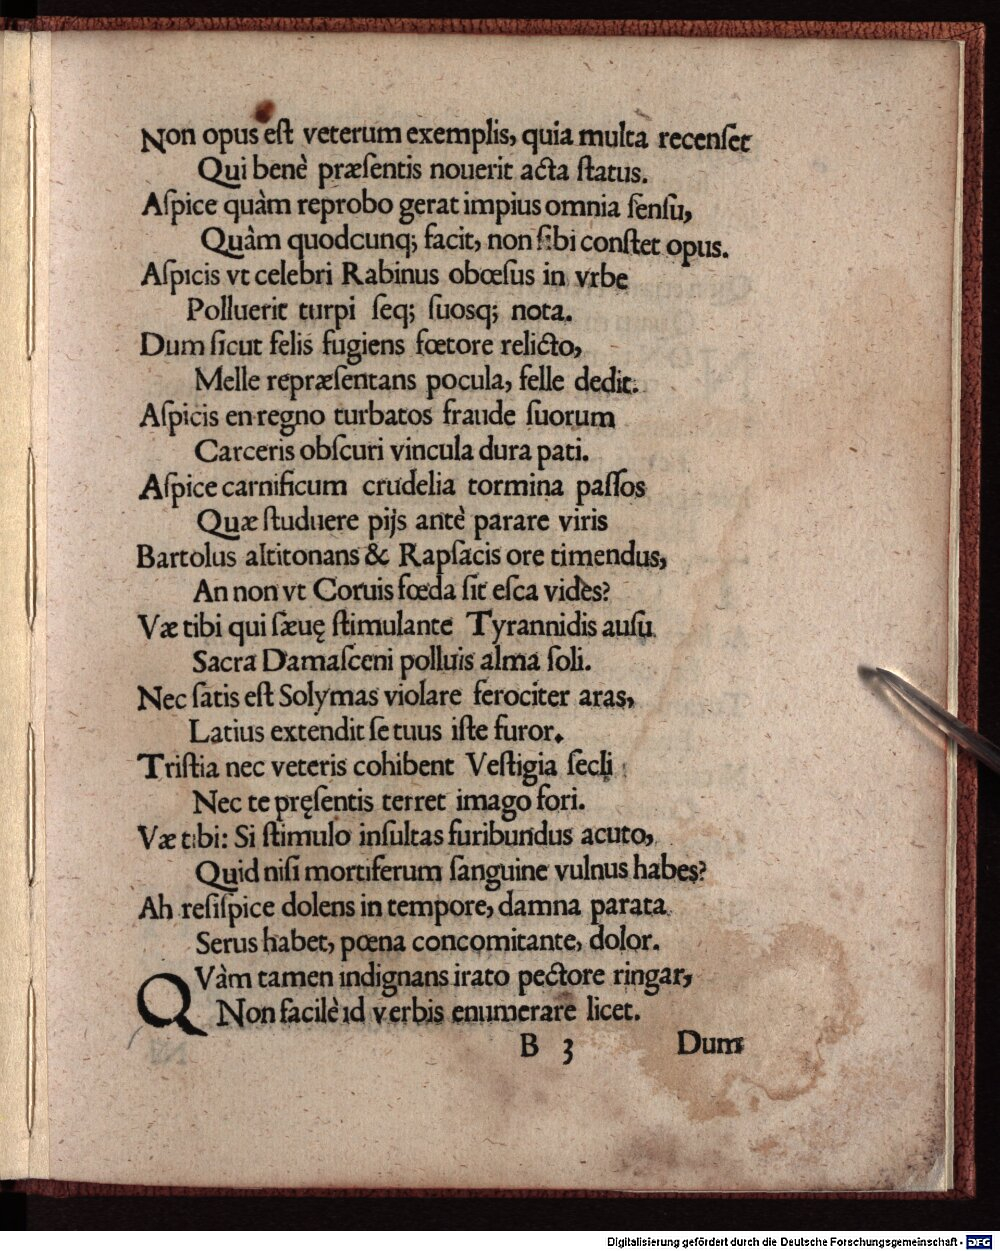 Non opus eſt veterum exemplis, quia multa recenſet
Qui benè præſentis nouerit acta ſtatus.
Aſpice quàm reprobo gerat impius omnia ſenſu,
Quàm quodcunq; facit, non ſibi conſtet opus.
Aſpicis vt celebri Rabinus obœſus in vrbe
Polluerit turpi ſeq; ſuosq; nota.
Dum ſicut felis fugiens fœtore relicto,
Melle repræſentans pocula, felle dedit.
Aſpicis en regno turbatos fraude ſuorum
Carceris obſcuri vincula dura pati.
Aſpice carnificum crudelia tormina paſſos
Quæ ſtuduere pijs antè parare viris
Bartolus altitonans & Rapſacis ore timendus,
An non vt Coruis fœda ſit eſca vides?
Væ tibi qui ſæuę ſtimulante Tyrannidis auſu
Sacra Damaſceni polluis alma ſoli.
Nec ſatis eſt Solymas violare ferociter aras,
Latius extendit ſe tuus iſte furor.
Triſtia nec veteris cohibent Veſtigia ſecli
Nec te pręſentis terret imago fori.
Væ tibi: Si ſtimulo inſultas furibundus acuto,
Quid niſi mortiferum ſanguine vulnus habes?
Ah reſiſpice dolens in tempore, damna parata
Serus habet, pœna concomitante, dolor.
QVàm tamen indignans irato pectore ringar,
Non facilè id verbis enumerare licet.
B 3 Dum
Digitalisierung gefördert durch die Deutsche Forschungsgemeinschaft - DFG